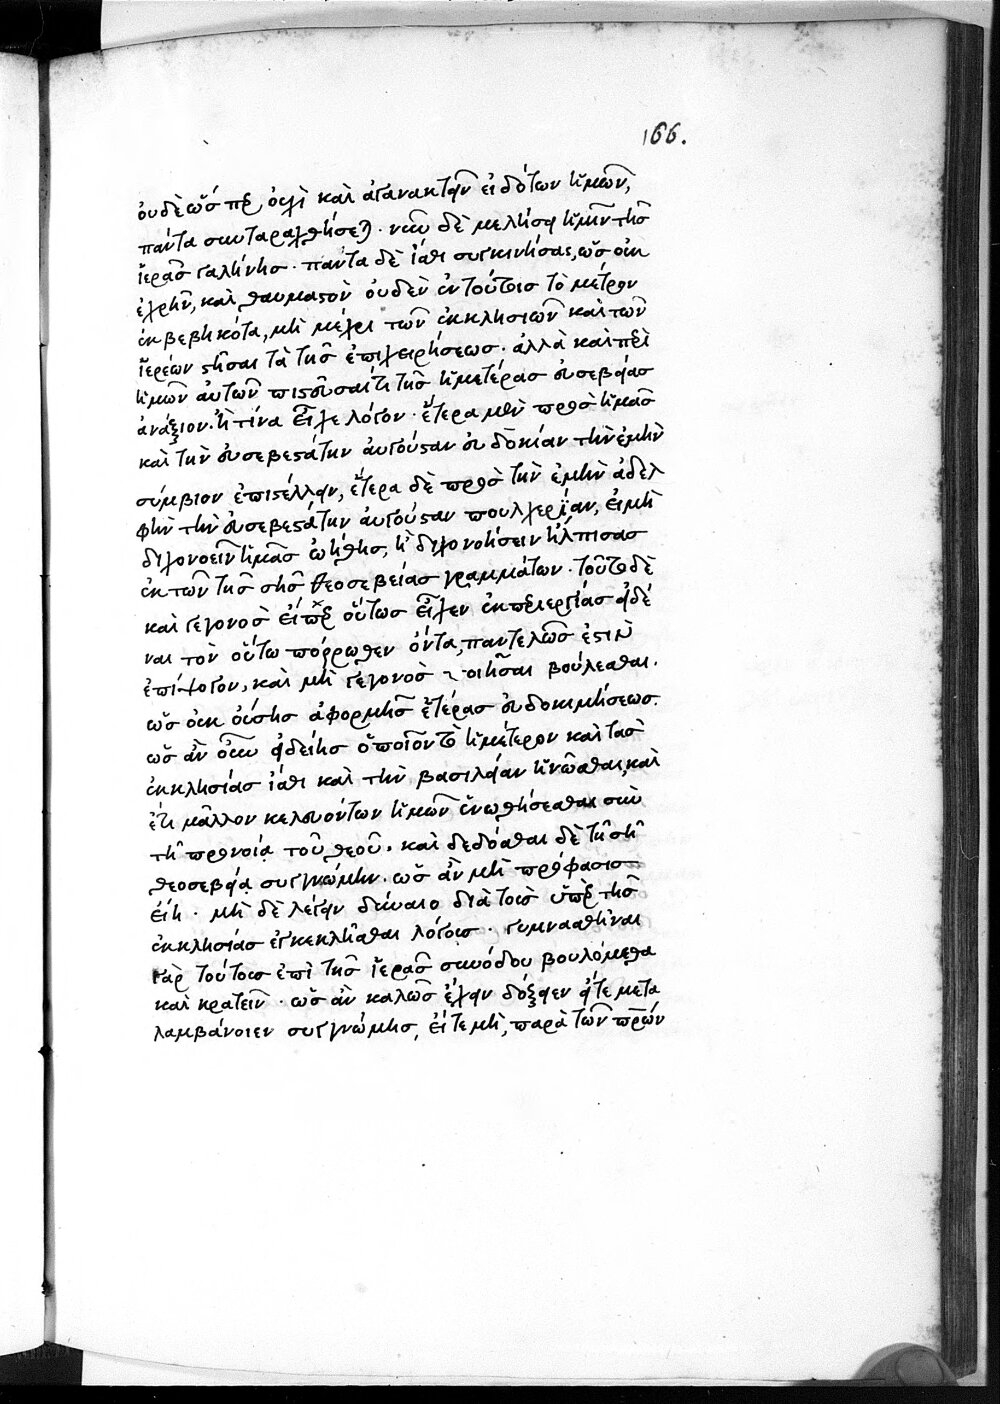 166.
οὐδὲ ὥσπερ, ὀργὴ καὶ ἀγανακτεῖν εἰδότων ἡμῶν,
πάντα συνταραχθήσεται. νῦν δὲ μελήσει ἡμῖν τῆς
ἱερᾶς γαλήνης. πάντα δὲ ἴσθι συγκινήσας, ὡς οὐκ
ἐχρῆν, καὶ θαυμαστὸν οὐδὲν ἐν τούτοις τὸ μέτρον
ἐκβεβηκότα, μὴ μέχρι τῶν ἐκκλησιῶν καὶ τῶν
ἱερέων στῆσαι τὰ τῆς ἐπιχειρήσεως. ἀλλὰ καὶ περὶ
ἡμῶν αὐτῶν πιστεῦσαί τι τῆς ἡμετέρας εὐσεβείας
ἀνάξιον. ἢ τίνα εἶχε λόγον. ἕτερα μὲν πρὸς ἡμᾶς
καὶ τὴν εὐσεβεστάτην αὐγούσταν εὐδοκίαν τὴν ἐμὴν
σύμβιον ἐπιστέλλειν, ἕτερα δὲ πρὸς τὴν ἐμὴν ἀδελ
φὴν τὴν εὐσεβεστάτην αὐγούσταν πουλχερίαν, εἰ μὴ
διχονοεῖν ἡμᾶς ᾠήθης, ἢ διχονοήσειν ἤλπισας
ἐκ τῶν τῆς σῆς θεοσεβείας γραμμάτων. τοῦτο δὲ
καὶ γεγονὸς εἴπερ οὕτως εἶχεν ἐκ περιεργίας εἰδέ
ναι τὸν οὕτω πόρρωθεν ὄντα, παντελῶς ἐστιν
ἐπίψογον, καὶ μὴ γεγονὸς ποιῆσαι βούλεσθαι.
ὡς οὐκ οὔσης ἀφορμῆς ἑτέρας εὐδοκιμήσεως.
ὡς ἂν οὖν εἰδείης ὁποῖον τὸ ἡμέτερον καὶ τὰς
ἐκκλησίας ἴσθι καὶ τὴν βασιλείαν ἡνῶσθαι, καὶ
ἔτι μᾶλλον κελευόντων ἡμῶν ἑνωθήσεσθαι σὺν
τῇ προνοίᾳ τοῦ θεοῦ. καὶ δεδόσθαι δὲ τῇ σῇ
θεοσεβείᾳ συγγνώμην. ὡς ἂν μὴ πρόφασις
εἴη. μὴ δὲ λέγειν δύναιο διὰ τοὺς ὑπὲρ τῆς
ἐκκλησίας ἐγκεκλῆσθαι λόγους. γυμνασθῆναι
γὰρ τούτους ἐπὶ τῆς ἱερᾶς συνόδου βουλόμεθα
καὶ κρατεῖν. ὡς ἂν καλῶς ἔχειν δόξειεν εἴτε μετα
λαμβάνοιεν συγγνώμης, εἴτε μὴ, παρὰ τῶν πρῶν